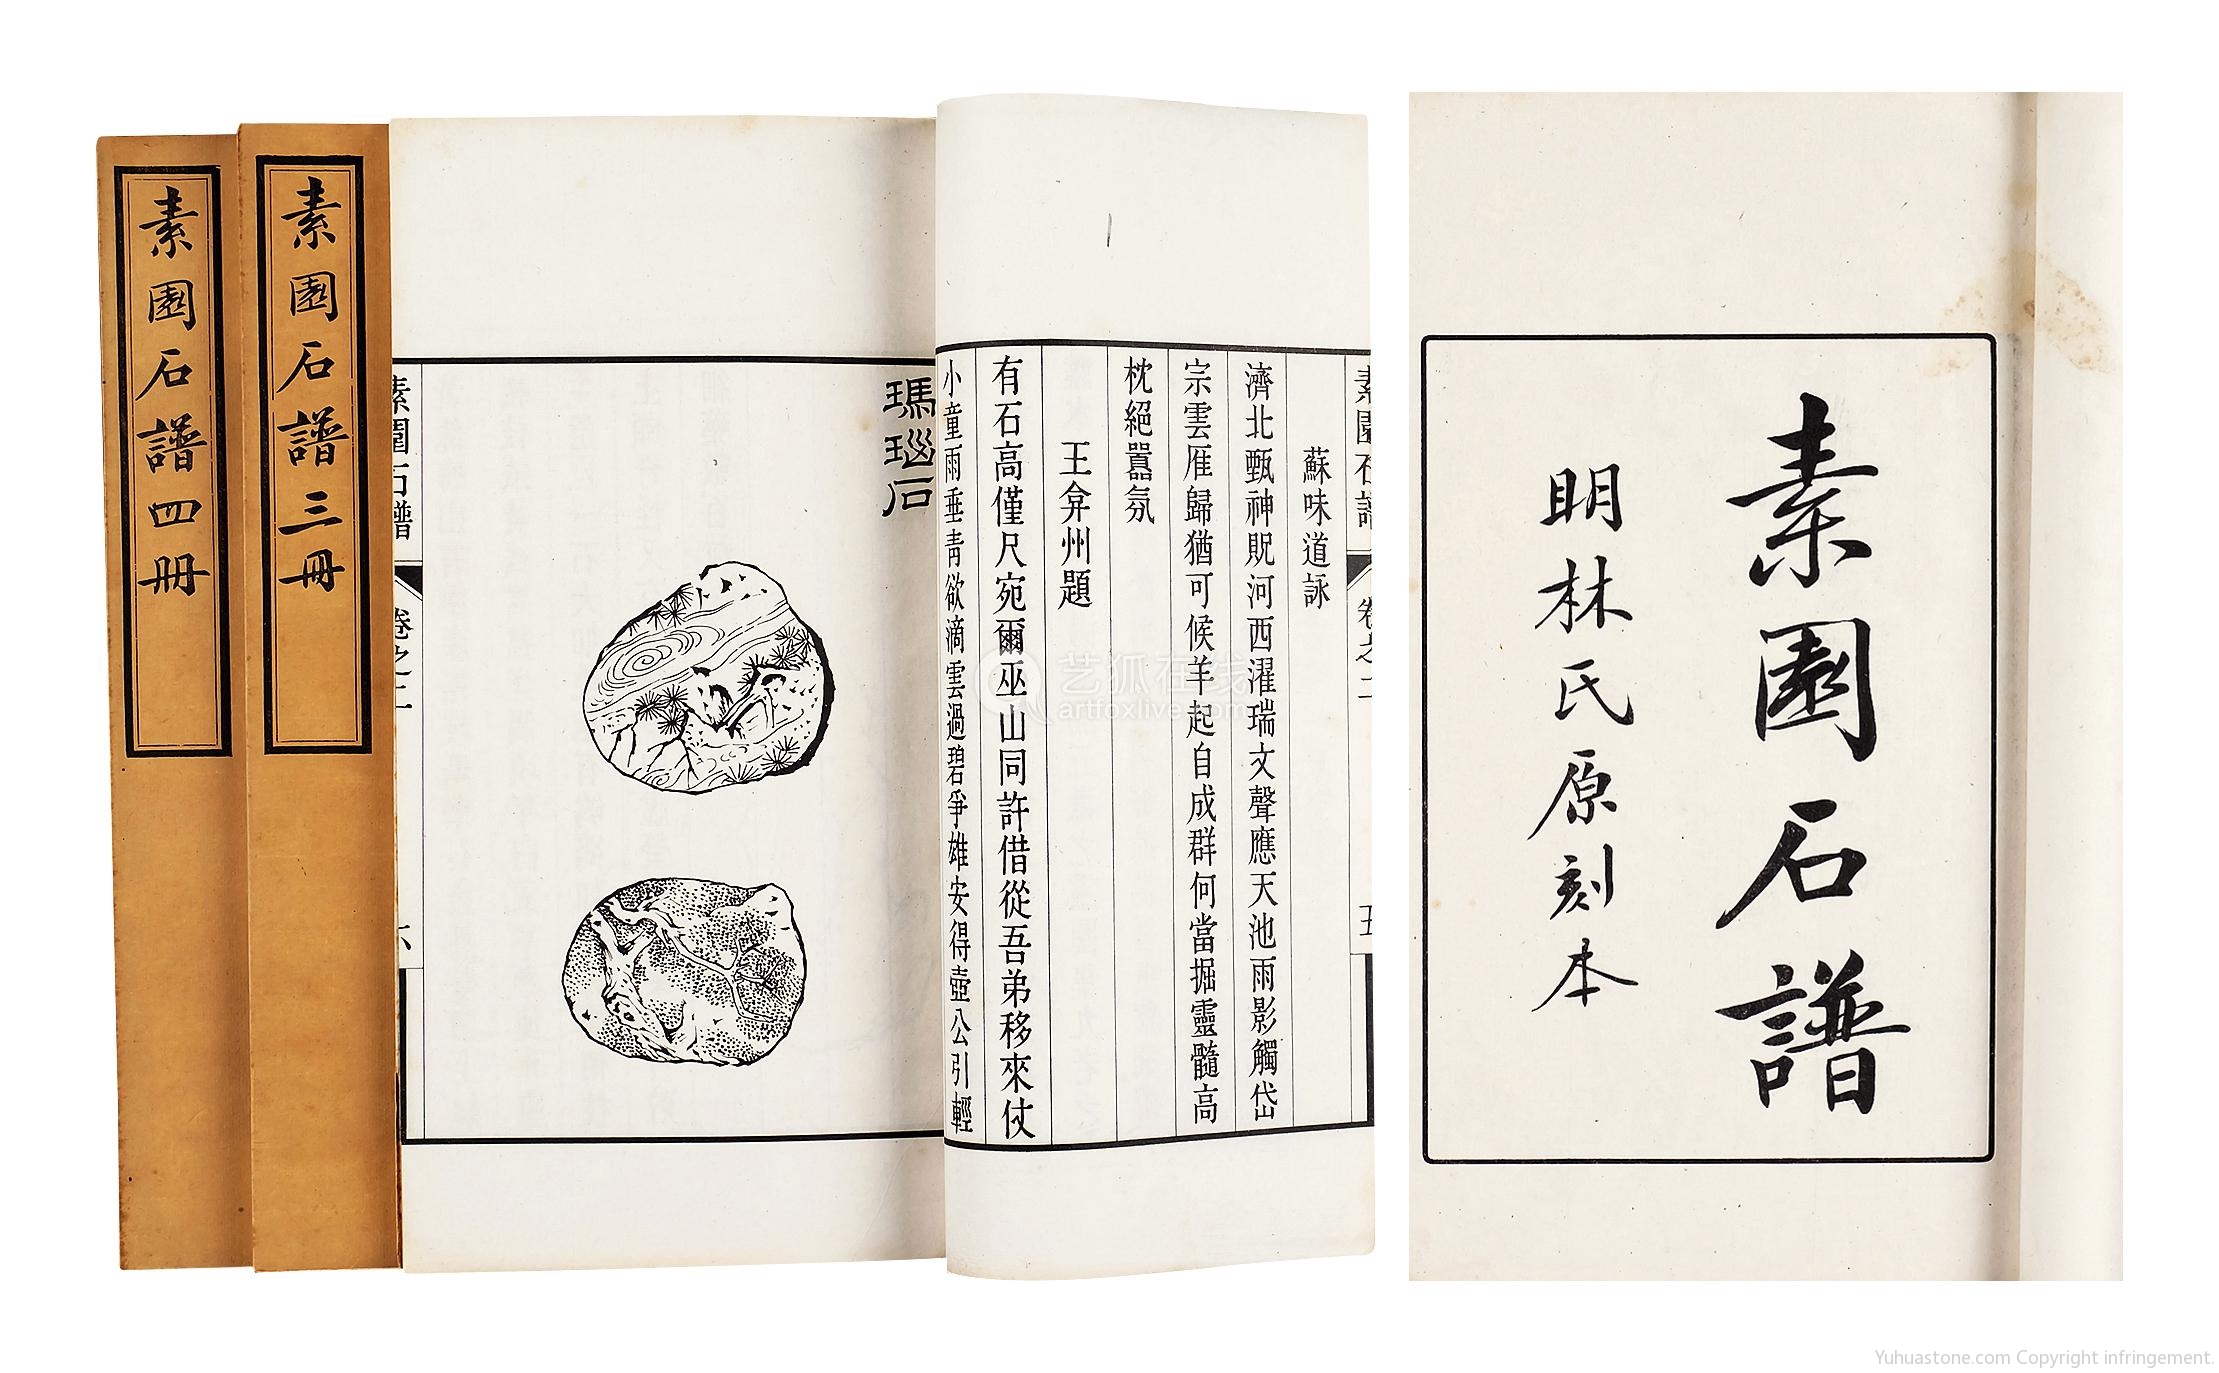 素園石譜四冊
素園石譜三冊
素園石譜
卷之二
六
瑪瑙石
素園石譜
卷之二
五
蘇味道詠
濟北甄神貺河西濯瑞文聲應天池雨影觸岱
宗雲雁歸猶可候羊起自成群何當掘靈髓高
枕絕囂氛
王弇州題
有石高僅尺宛爾巫山同許借從吾弟移來仗
小童雨垂青欲滴雲過碧爭雄安得壺公引輕
艺狐在线
artfoxlive.com
素園石譜
明林氏原刻本
Yuhuastone.com Copyright infringement.